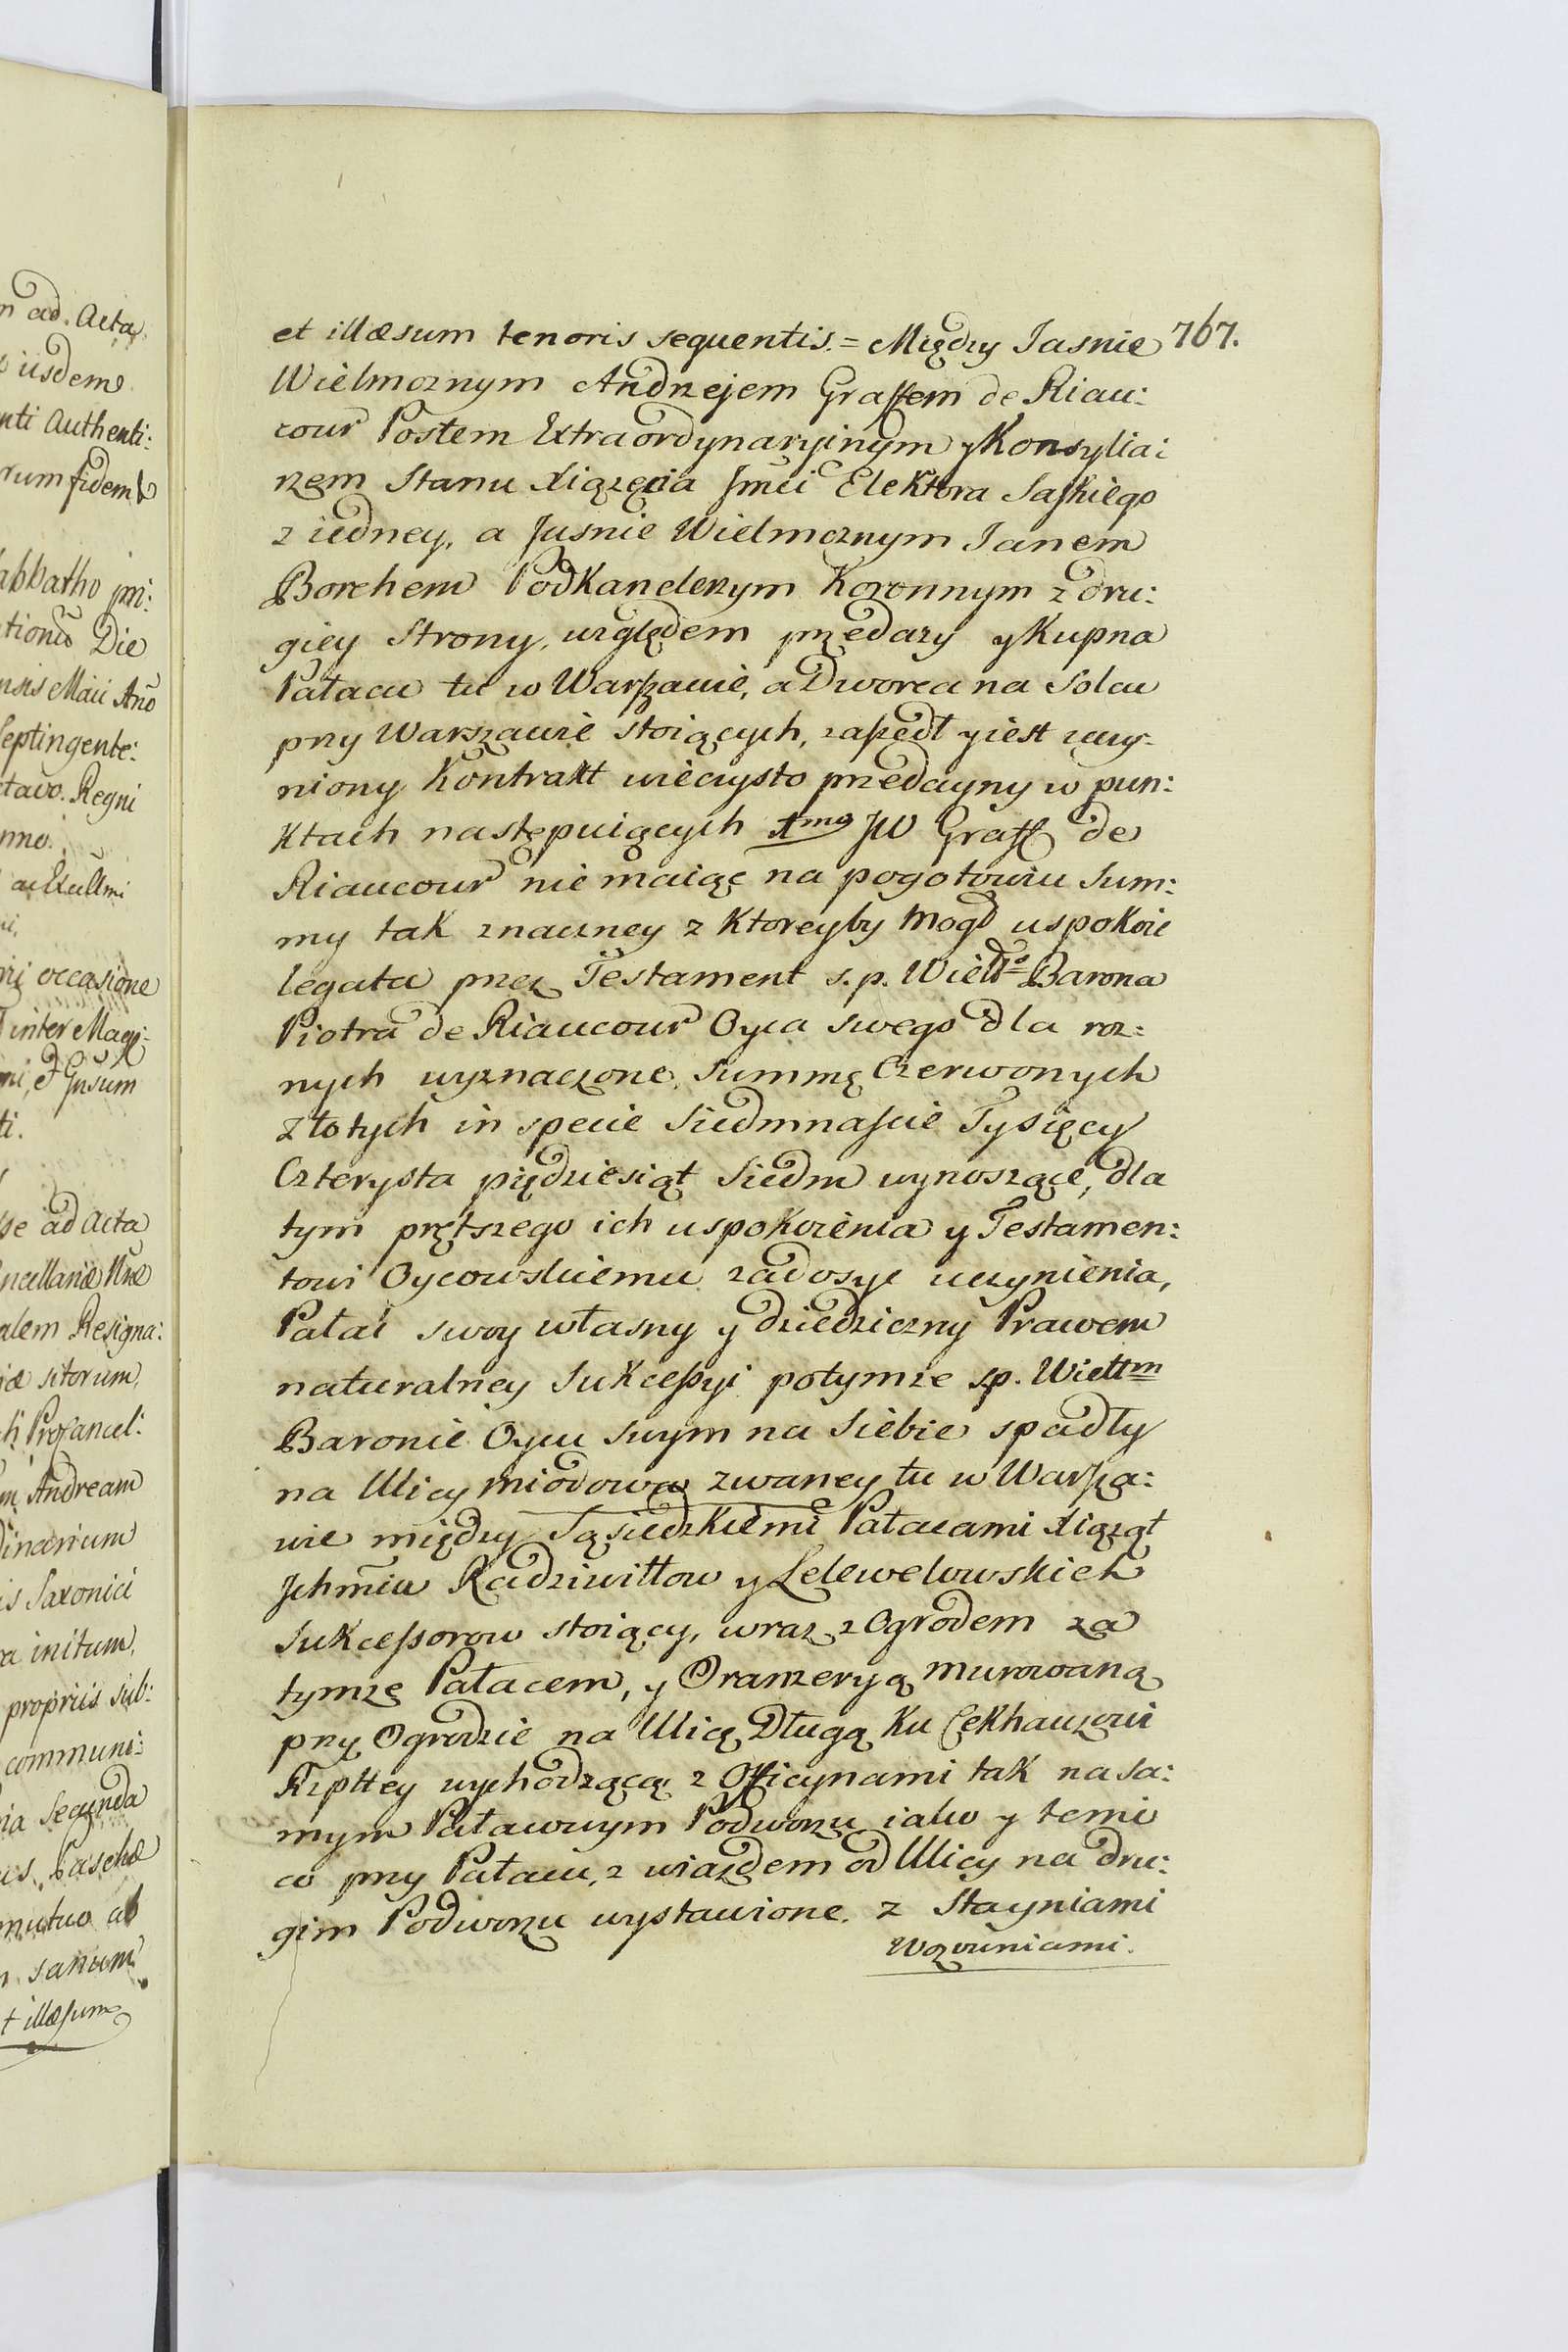 n ad. Acta
iisdem
nti Authenti:
rum fidem
abbatho pri:
tionis Die
nsis Maii Año
Septingente:
ctavo. Regni
nno.
ni.
ni occasione
inter Magi:
ni, et Ipsum
ti.
se ad Acta
ncellariæ Nræ
alem Resigna:
iæ sitorum,
h Procancel:
m Andream
dinarium
is Saxonici
ra initum,
propriis sub:
communi:
ria Secunda
is Paschæ
mutuo ab
n. sanum
t illæsum
767.
et illæsum tenoris sequentis. = Między Iasnie
Wielmoznym Andrzejem Graffem de Riau:
cour Posłem Extraordynaryinym y Konsylia:
rzem Stanu Xiążęcia Jmći Elektora Saskiego
z iedney, a Jasnie Wielmoznym Ianem
Borchem Podkanclerzym Koronnym z dru:
giey Strony, względem przedazy y Kupna
Pałacu tu w Warszawie, a Dworca na Solcu
przy Warszawie stoiących, zaszedł y iest uczy:
niony Kontrakt wieczysto przedayny w pun:
ktach następuiących 1mo JW Graff de
Riaucour nie maiąc na pogotowiu Sum:
my tak znaczney z ktoreyby mogł uspokoic
legata przez Testament s. p. Wiello Barona
Piotra de Riaucour Oyca swego dla roz:
nych wyznaczone, summę Czerwonych
Złotych in specie Siedmnascie Tysięcy
Czterysta pięędziesiąt Siedm wynoszące, dla
tym prętszego ich uspokoienia y Testamen:
towi Oycowskiemu zadosyc uczynienia,
Pałac swoy własny y dziedziczny Prawem
naturalney Sukcessyi potymze s.p. Wiellm
Baronie Oycu swym na siebie spadły
na Ulicy miodowa zwaney tu w Warsza:
wie między Sąsiedzkiemi Pałacami Xiążąt
Jchmćiu Radziwiłłow y Lelewelowskich
Sukcessorow stoiący, wraz z Ogrodem za
tymze Pałacem, y Oranzeryą murowaną
przy Ogrodzie na Ulicę Długą ku Cekhauzowi
Rzpltey wychodzącą z Officynami tak na sa:
mym Pałacowym Podworzu iako y temi
co przy Pałacu, z wiazdem od Ulicy na dru:
gim Podworzu wystawione, z Stayniami
Wozowniami.